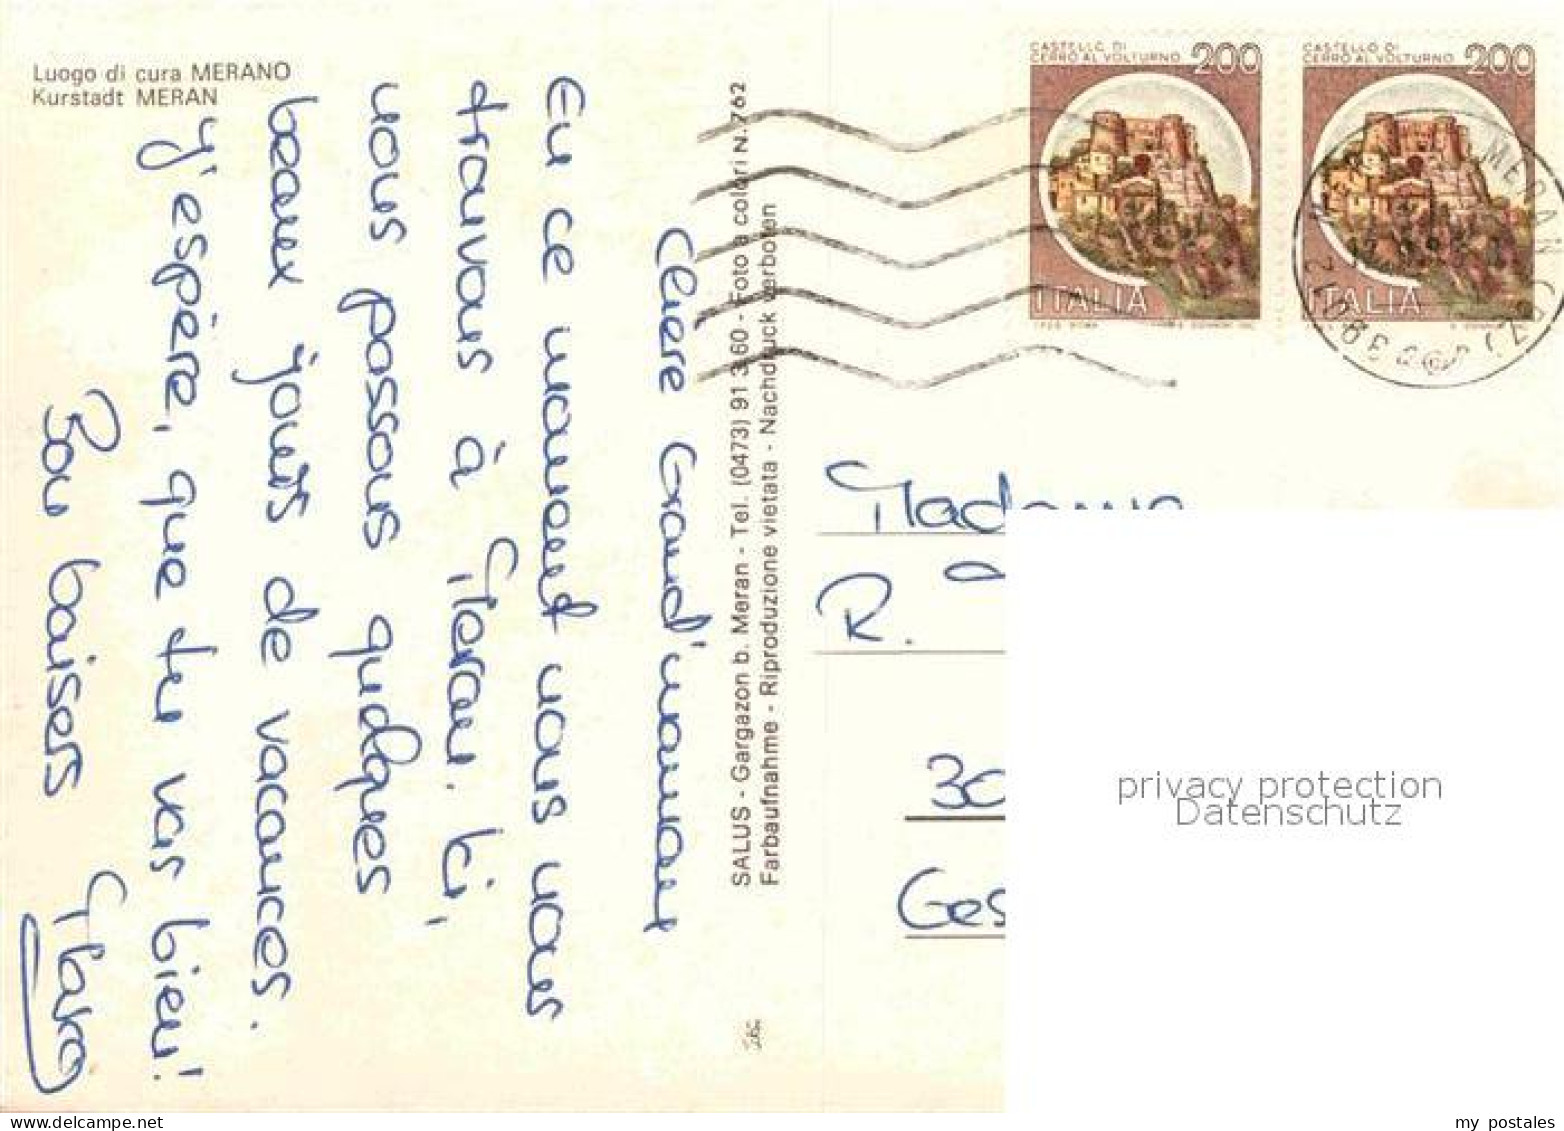 Luogo di cura MERANO
Kurstadt MERAN
Chère Grand'maman
En ce moment nous nous
trouvons à Meran. Ici,
nous passons quelques
beaux jours de vacances.
J'espère, que tu vas bien!
Bon baisers
Marco
SALUS - Gargazon b. Meran - Tel. (0473) 91 3 60 - Foto a colori N. 762
Farbaufnahme - Riproduzione vietata - Nachdruck verboten
CASTELLO DI
CERRO AL VOLTURNO 200
ITALIA
CASTELLO DI
CERRO AL VOLTURNO 200
ITALIA
MERAN
39012
Madame
R.
30
Ges
privacy protection
Datenschutz
my postales